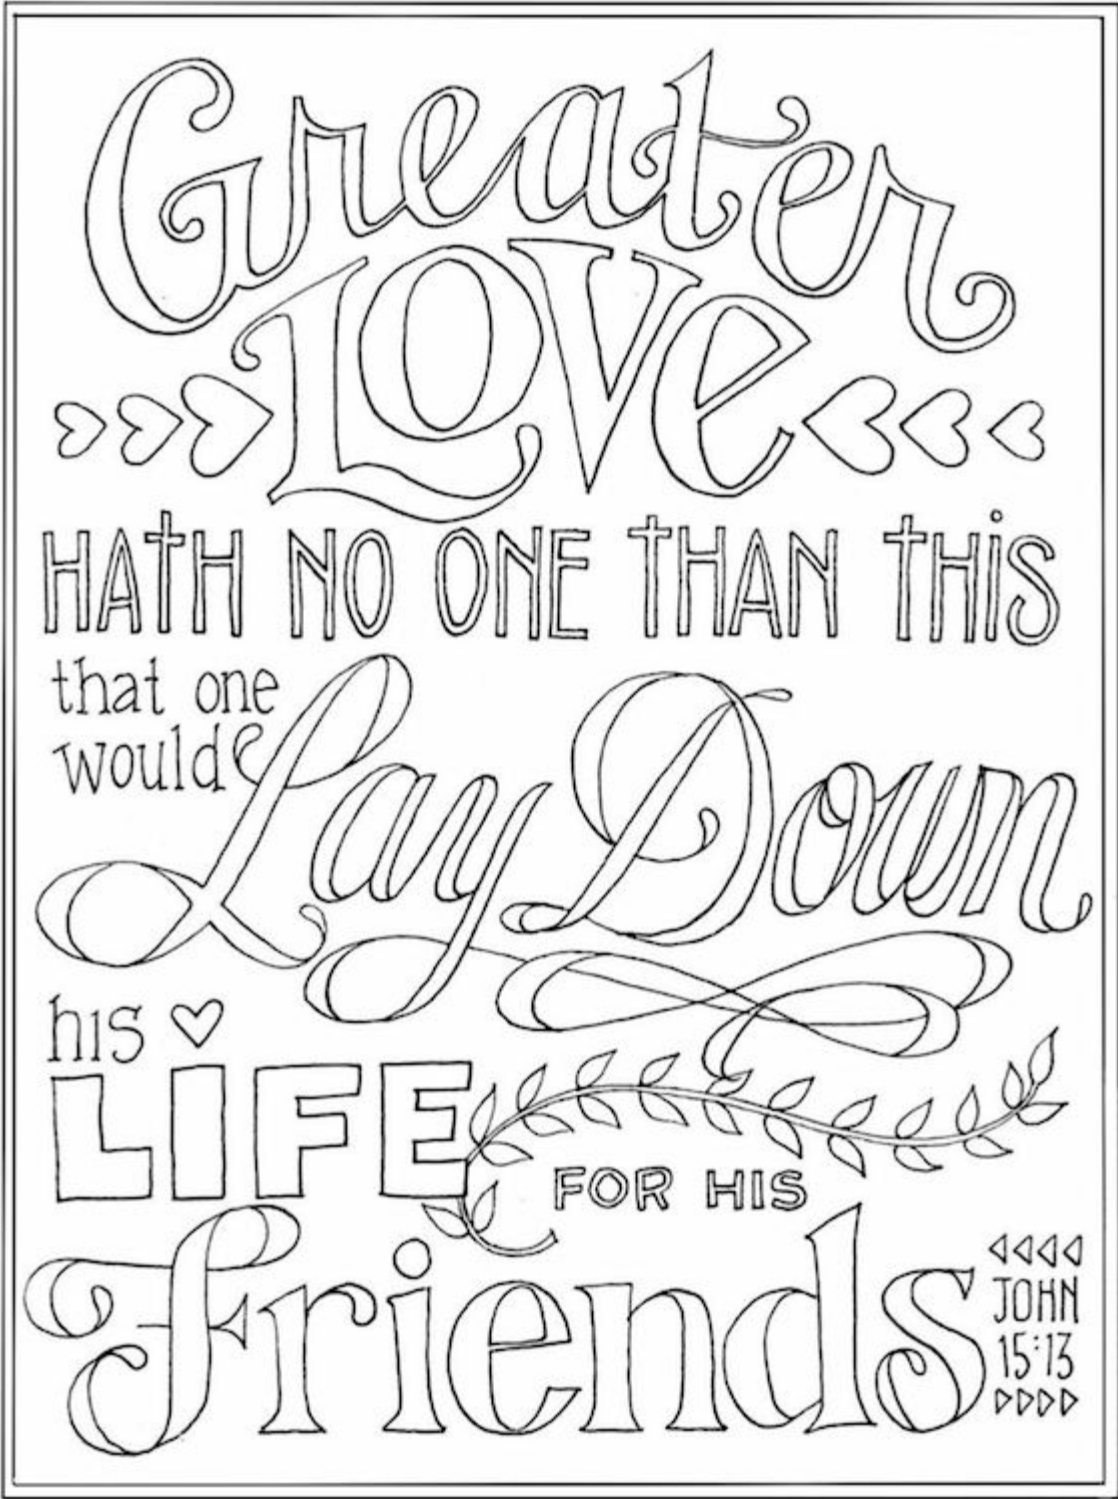 Greater
LOVe
HAtH NO ONE tHAN tHiS
that one
would
Lay Down
his
LIFE
FOR HIS
Friends
JOHN
15:13